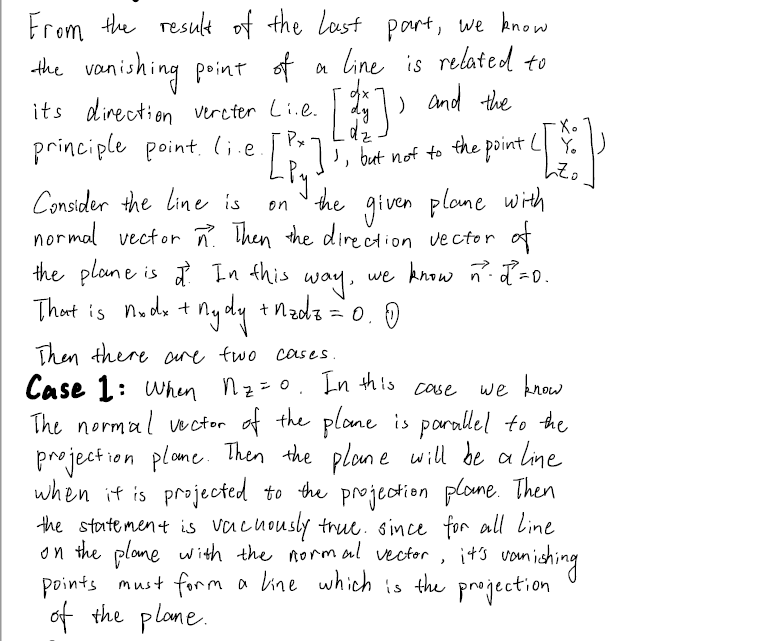 From the result of the last part, we know
the vanishing point of a line is related to
its direction vercter (i.e. [dx dy dz]) and the
principle point. (i.e. [Px Py]), but not to the point ([X₀ Y₀ Z₀])
Consider the line is on the given plane with
normal vector n⃗. Then the direction vector of
the plane is d⃗. In this way, we know n⃗·d⃗=0.
That is nxdx + nydy + nzdz = 0. ①
Then there are two cases.
Case 1: When nz = 0. In this case we know
The normal vector of the plane is parallel to the
projection plane. Then the plane will be a line
when it is projected to the projection plane. Then
the statement is vacuously true. since for all line
on the plane with the normal vector, it's vanishing
points must form a line which is the projection
of the plane.